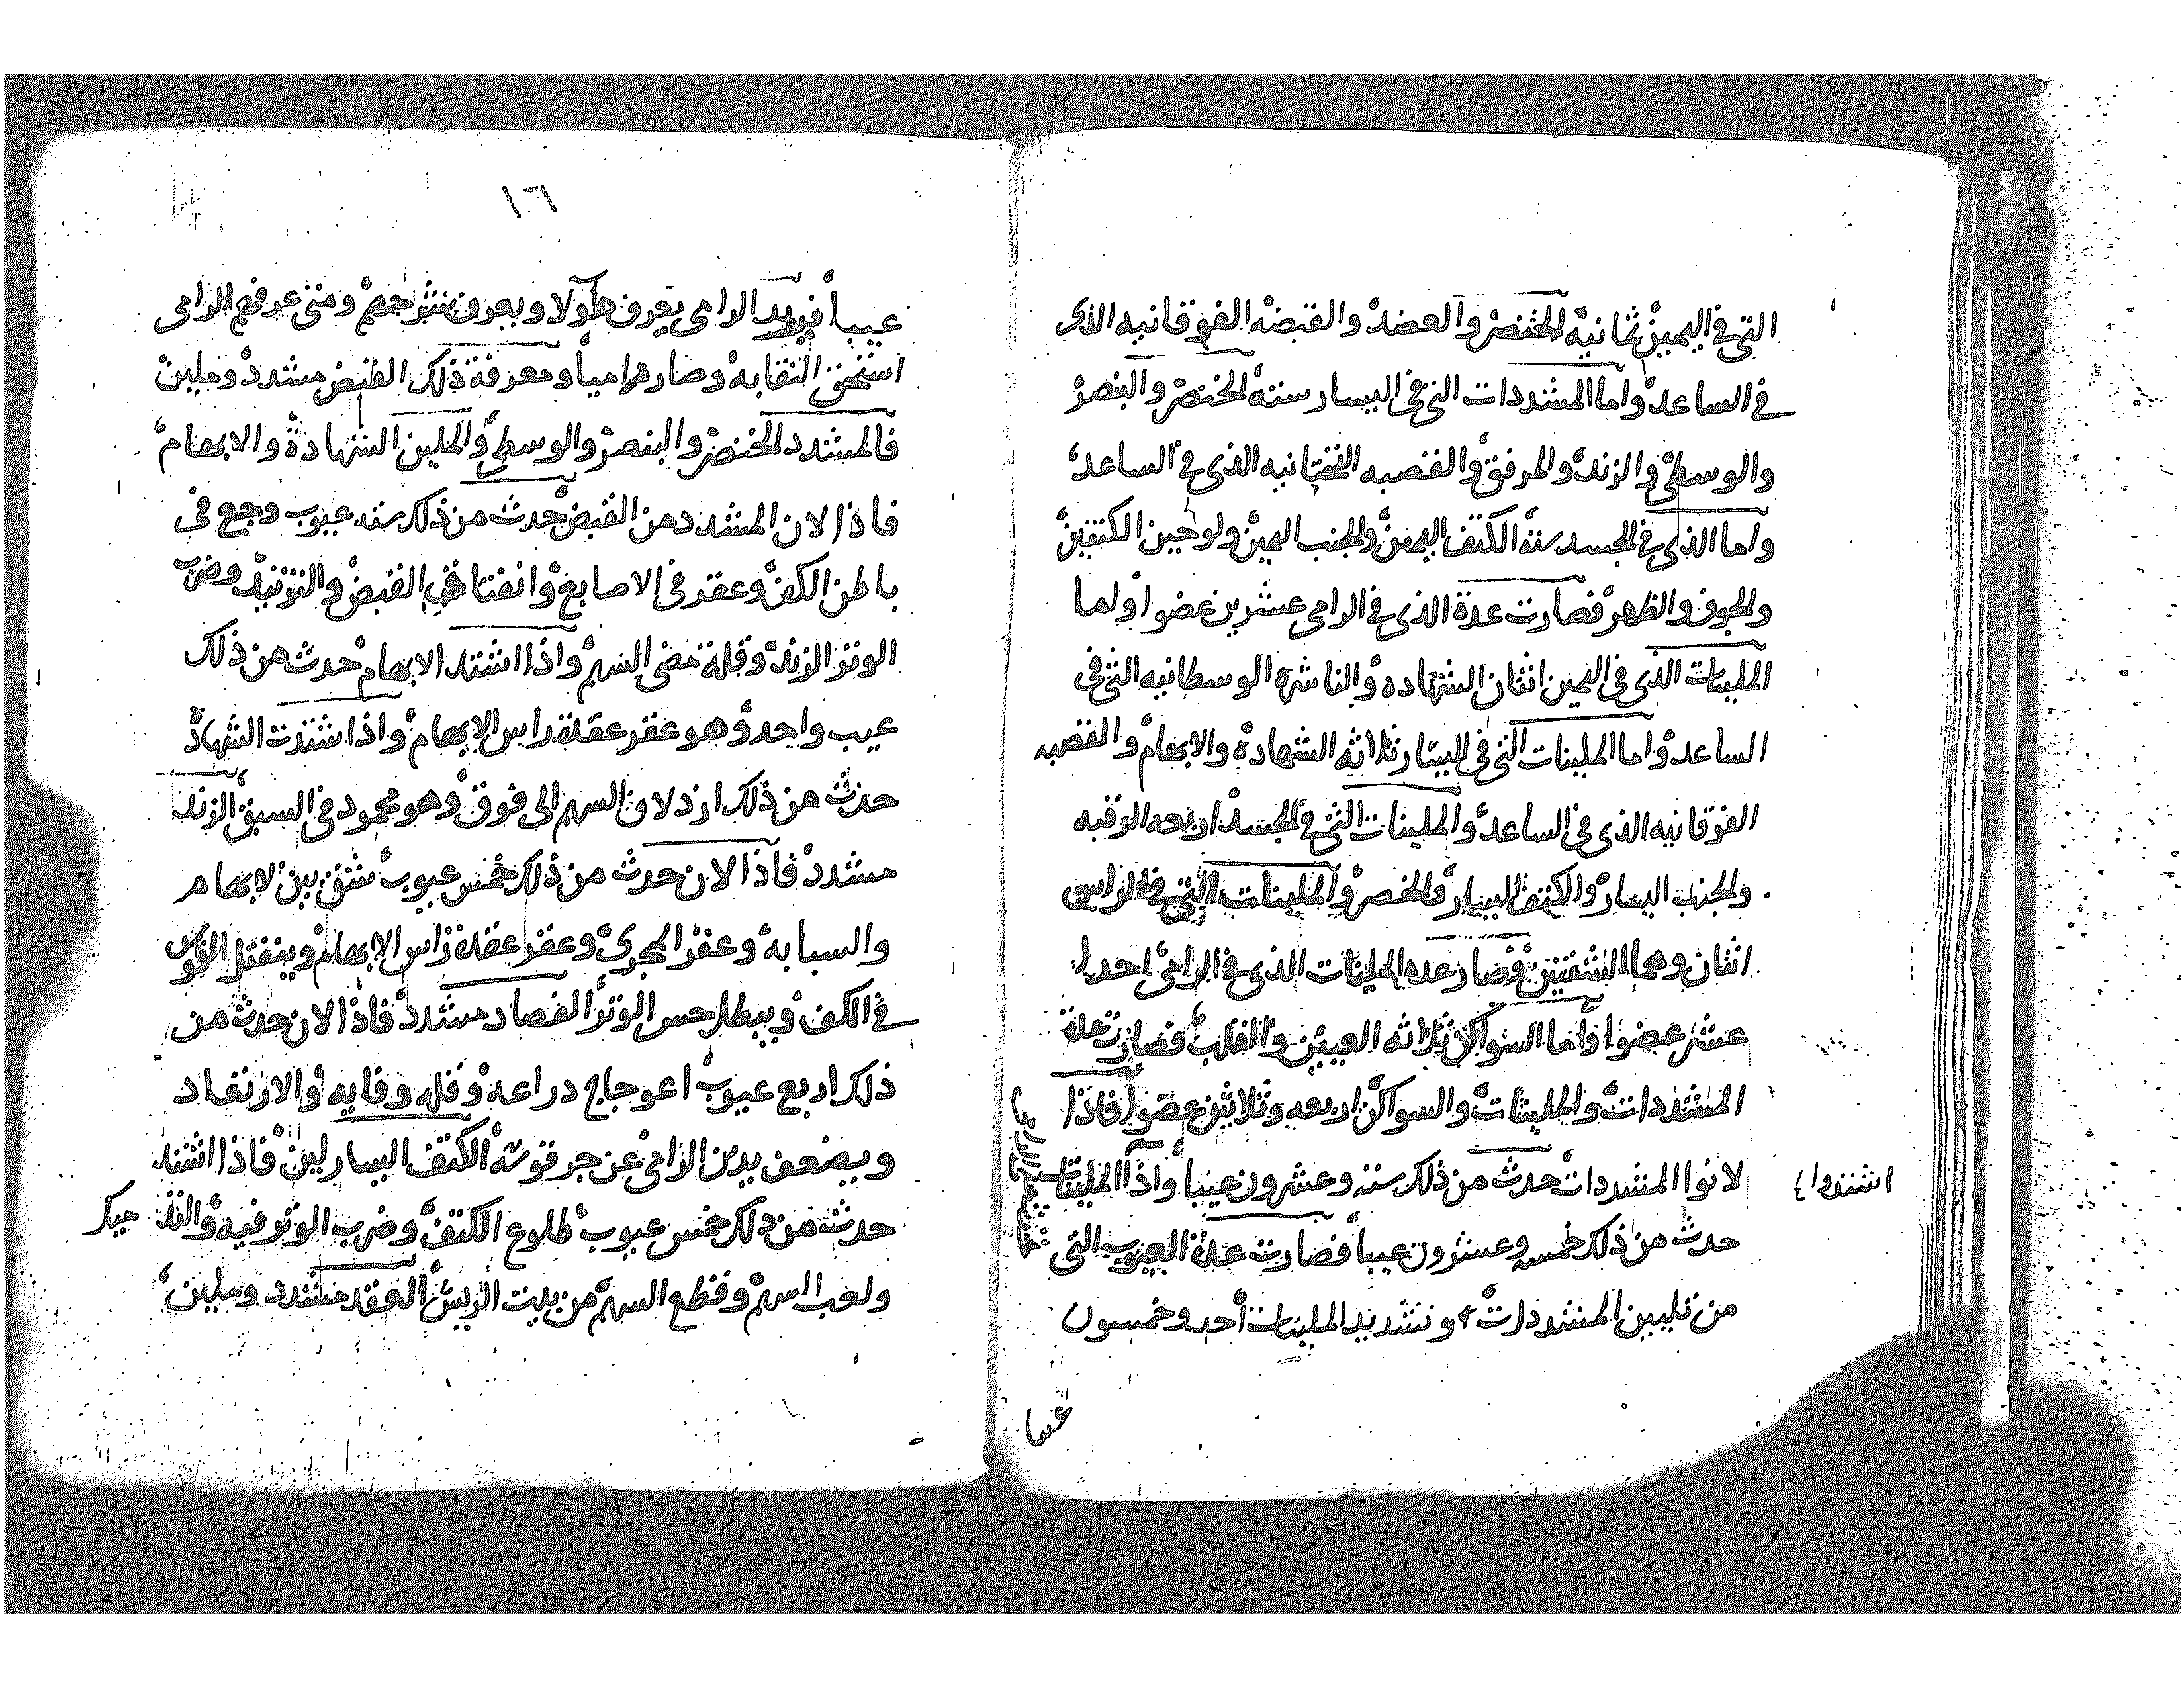 التى فى اليمين ثمانيه الخنصر والعضد والقبضه الفوقانيه الذى
فى الساعد واما المشددات التى فى اليسار سته الخنصر والبنصر
والوسطى والزند والمرفق والقصبه التحتانيه الذى فى الساعد
واما الذى فى الجسد سته الكتف اليمين والجنب اليمين ولوحين الكتفين
والجوف والظهر فصارت عدة الذى فى الرامى عشرين عضوا واما
الملينات الذى فى اليمين اثنان الشهاده والناشره الوسطانيه التى فى
الساعد واما الملينات التى فى اليسار ثلاثه الشهادة والابهام والقصبه
الفوقانيه الذى فى الساعد والملينات التى فى الجسد اربعه الرقبه
والجنب اليسار والكتف اليسار والخصر والملينات التى فى الراس
اثنان وهما الشفتين فصار عدة الملينات الذى فى الرامى احدا
عشر عضوا واما السواكن ثلاثه العينين والقلب فصارت عدة
المشددات والملينات والسواكن اربعه وثلاثين عضوا فاذا
لانوا المشددات حدث من ذلك سته وعشرون عيبا واذا الملينات
اشتدوا
حدث من ذلك خمسه وعشرون عيبا فصارت عدة العيوب التى
من تليين المشددات وتشديد الملينات أحد وخمسون
عيبا
١٦
عيبا فيريد الرامى يعرف هولا ويعرف شرحهم ومتى عرفهم الرامى
استحق النقابه وصار راميا ومعرفة ذلك القبض مشدد وملين
فالمشدد الخنصر والبنصر والوسطى والملين الشهادة والابهام
فاذا لان المشدد من القبض حدث من ذلك سته عيوب وجع فى
باطن الكف وعقر فى الاصابع وانفتاخ فى القبض والتزنيد وضرب
الوتر الزند وقلة مضى السهم واذا اشتد الابهام حدث من ذلك
عيب واحد وهو عقر عقدة راس الابهام واذا اشتدت الشهادة
حدث من ذلك ازدلاق السهم الى فوق وهو محمود فى السبق الزند
مشدد فاذا لان حدث من ذلك خمس عيوب شقق بين الابهام
والسبابه وعقر المجرى وعقر عقدة راس الابهام وينفتل القوس
فى الكف ويبطل حس الوتر الفصاد مشدد فاذا لان حدث من
ذلك اربع عيوب اعوجاج دراعه وقله وفايه والارتعاد
ويضعف يدين الرامى عن جر قوسه الكتف اليسار لين فاذا اشتد
حدث من ذلك خمس عيوب طلوع الكتف وضرب الوتر فيه
ولعب السهم وقطع السهم من بيت الريش العقد مشدد وملين